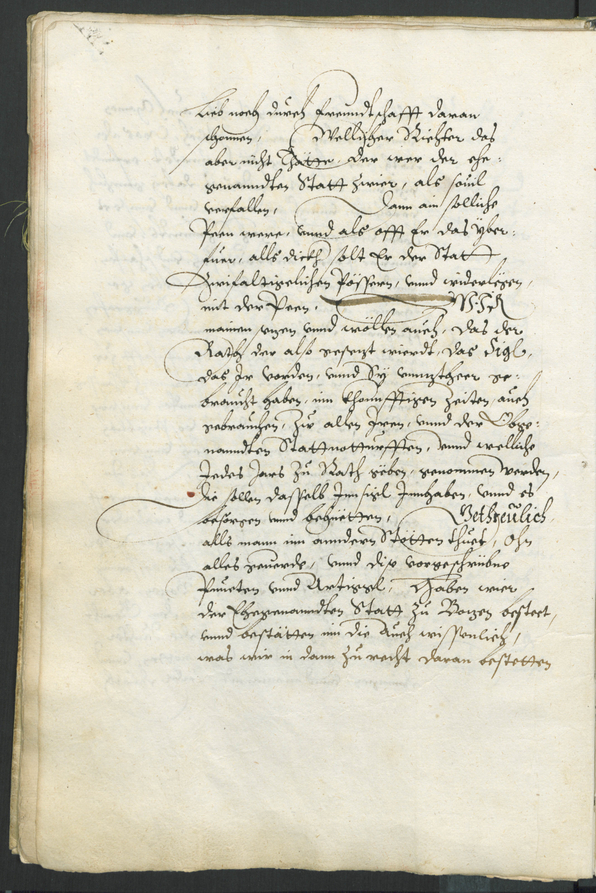 Lieb noch durch freundtschafft daran
schonnen, Wellicher Richter des
aber nicht Thätte, der wer der ehe-
genandten Statt zwier, als souil
verfallen, Dann ain solliche
Peen were, vnnd als offt Er das yber-
fuer, alls dickh solt Er der Statt
Zwifaltigelichen pössern, vnnd widerlegen,
mit der Peen, Wir
mainen vnnd wöllen auch, das der
Rath der also gesezt wierdt, das Sigl,
das Jr vorden, vnnd Sy vnnzther ge-
braucht haben, inn khonnfftigen Zeiten, auch
gebrauchen, Zu allen Jren, vnnd der Obge-
nanndten Stattnotturfften, vnnd welliche
Jedes Jars Zu Rath geben, genommen werden,
die sollen dasselb Innsigl Innhaben, vnnd es
besorgen vnnd behüetten, Getheulich,
alls mann inn anndern Stötten thuet, Ohn
alles geuerde, vnnd dise vorgeschribne
Puncten vnnd Articgl, Haben wier
der Ehegenanndten Statt Zu Bozen bestett,
vnnd bestätten in die Auch wissenlich,
was wir in dann Zu recht daran bestetten